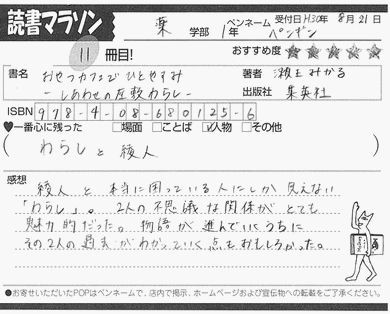 読書マラソン
薬 学部 1年 ペンネーム ペンギン 受付日 H30年 8月 21日
11 冊目! おすすめ度 ★★★★★
書名 おせっカフェでひとやすみ
-しあわせの座敷わらし-
著者 瀬王みかる
出版社 集英社
ISBN 978-4-08-680125-6
♥一番心に残った □場面 □ことば ☑人物 □その他
(わらしと綾人)
感想
綾人と本当に困っている人にしか見えない
「わらし」。2人の不思議な関係がとても
魅力的だった。物語が進んでいくうちに
その2人の過去がわかっていく点もおもしろかった。
●お寄せいただいたPOPはペンネームで、店内で掲示、ホームページおよび宣伝物への転載をご了承ください。